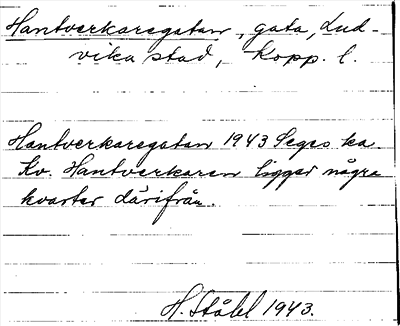 Hantverkaregatan, gata, Lud-
vika stad, Kopp. l.
Hantverkaregatan 1943 Seges ha.
Kv. Hantverkaren ligger några
kvarter därifrån.
H. Ståhl 1943.